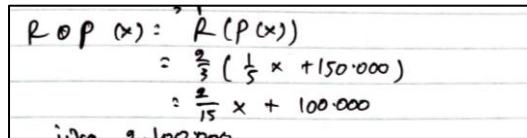 R o P (x) = R (P(x))
= 2/3 ( 1/5 x + 150.000 )
= 2/15 x + 100.000